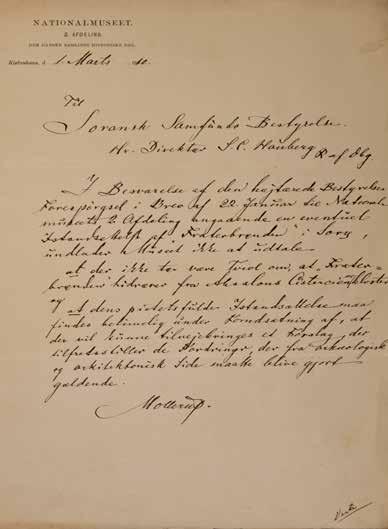 NATIONALMUSEET.
2. AFDELING.
DEN DANSKE SAMLINGS HISTORISKE DEL.
Kjøbenhavn, d. 1. Marts 10.
Til
Soransk Samfunds Bestyrelse.
Hr. Direktør S.C. Hauberg R af Dbg
I Besvarelse af den højtærede Bestyrelses
Forespørgsel i Brev af 22 Januar til National-
museets 2. Afdeling angaaende en eventuel
Istandsættelse af "Fraterbrønden" i Sorø,
undlader Museet ikke at udtale
at der ikke tør være Tvivl om, at "Frater-
brønden" hidrører fra Absalons Cistercienserkloster
og at dens pietetsfulde Istandsættelse maa
findes betimelig under Forudsætning af, at
der vil kunne tilvejebringes et Forslag, der
tilfredsstiller de Fordringer, der fra arkæologisk
og arkitektonisk Side maatte blive gjort
gældende.
Mollerup.